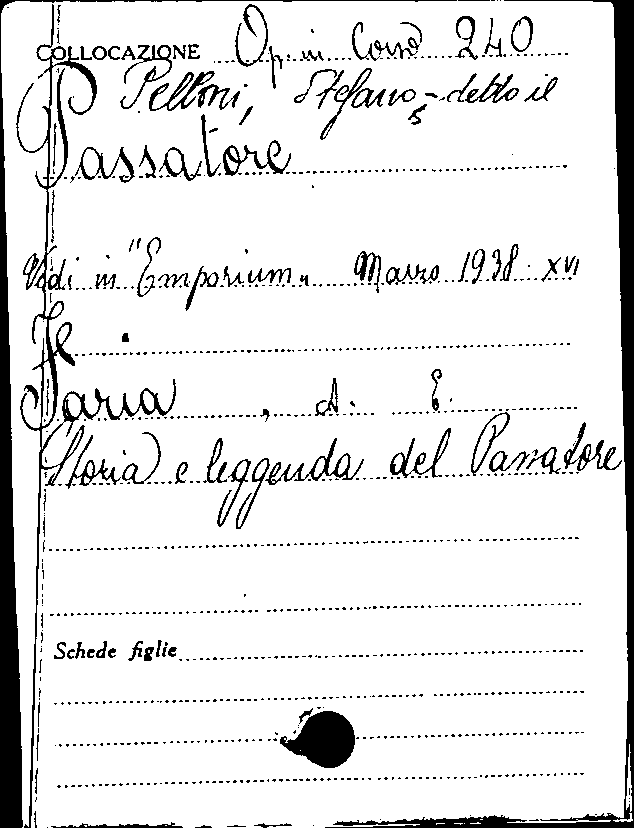 COLLOCAZIONE Op. in Corso 240
Pelloni, Stefano - detto il
Passatore
Vedi in "Emporium" Marzo 1938 - XVI
Faria, A. E.
Storia e leggenda del Passatore
Schede figlie